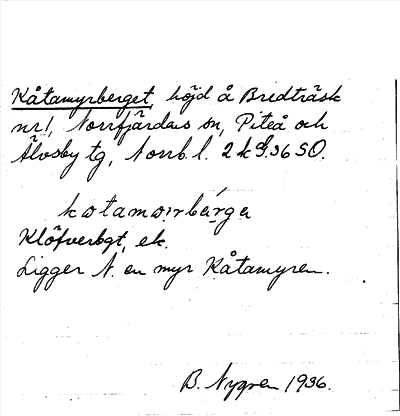 Kåtamyrberget, höjd å Bredträsk
nr 1, Norrfjärdens sn, Piteå och
Älvsby tg, Norrb. l. 2 k G. 36 SO.
kotamørrbärga
Klöfverbgt, ek.
Ligger N. en myr Kåtamyren.
B. Nygren 1936.